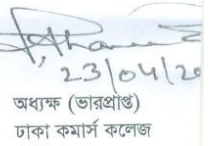 23/04/20
অধ্যক্ষ (ভারপ্রাপ্ত)
ঢাকা কমার্স কলেজ